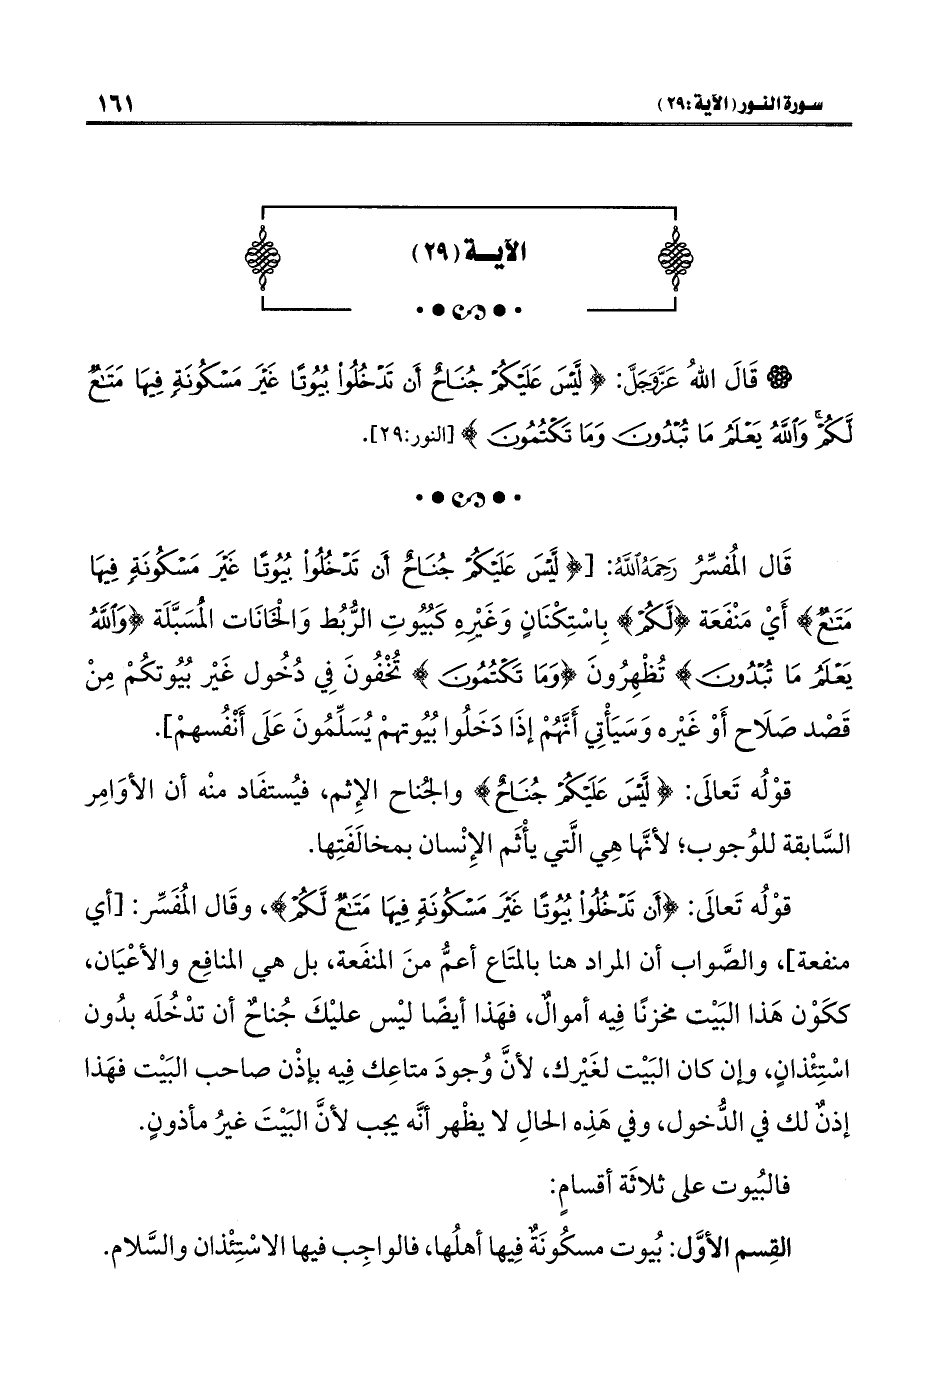 سورة النور (الآية: ٢٩) ١٦١
الآيــة (٢٩)
قَالَ اللهُ عَزَّوَجَلَّ: ﴿ لَّيْسَ عَلَيْكُمْ جُنَاحٌ أَن تَدْخُلُوا۟ بُيُوتًا غَيْرَ مَسْكُونَةٍ فِيهَا مَتَـٰعٌ
لَّكُمْ ۚ وَٱللَّهُ يَعْلَمُ مَا تُبْدُونَ وَمَا تَكْتُمُونَ ﴾ [النور:٢٩].
قَال المُفسِّرُ رَحِمَهُ ٱللَّهُ: [﴿ لَّيْسَ عَلَيْكُمْ جُنَاحٌ أَن تَدْخُلُوا۟ بُيُوتًا غَيْرَ مَسْكُونَةٍ فِيهَا
مَتَـٰعٌ﴾ أَيْ مَنْفَعَة ﴿لَّكُمْ﴾ بِاسْتِكْنَانٍ وَغَيْرِهِ كَبُيُوتِ الرُّبُط وَالْخَانَات المُسَبَّلَة ﴿وَٱللَّهُ
يَعْلَمُ مَا تُبْدُونَ﴾ تُظْهِرُونَ ﴿وَمَا تَكْتُمُونَ ﴾ تُخْفُونَ فِي دُخُول غَيْر بُيُوتكُمْ مِنْ
قَصْد صَلَاح أَوْ غَيْره وَسَيَأْتِي أَنَّهُمْ إذَا دَخَلُوا بُيُوتهمْ يُسَلِّمُونَ عَلَى أَنْفُسهمْ].
قوْلُه تَعالَى: ﴿ لَّيْسَ عَلَيْكُمْ جُنَاحٌ﴾ والجُناح الإثم، فيُستفَاد منْه أن الأوَامِر
السَّابقة للوُجوب؛ لأنَّها هِي الَّتي يأْثَم الإنْسان بمخالَفَتِها.
قوْلُه تَعالَى: ﴿أَن تَدْخُلُوا۟ بُيُوتًا غَيْرَ مَسْكُونَةٍ فِيهَا مَتَـٰعٌ لَّكُمْ﴾، وقَال المُفَسِّر: [أي
منفعة]، والصَّواب أن المراد هنا بالمتَاع أعمُّ منَ المنفَعة، بل هي المنافِع والأعْيَان،
ككَوْن هَذا البَيْت مخزنًا فِيه أموالٌ، فهَذا أيضًا ليْس عليْكَ جُناحٌ أن تدْخُلَه بدُون
اسْتِئْذانٍ، وإن كان البَيْت لغَيْرك، لأنَّ وُجودَ متاعِك فِيه بإذْن صاحب البَيْت فهَذا
إذنٌ لك في الدُّخول، وفي هَذِه الحالِ لا يظْهر أنَّه يجب لأنَّ البَيْتَ غيرُ مأذونٍ.
فالبُيوت على ثلاثَة أقسامٍ:
القِسم الأوَّل: بُيوت مسكُونَةٌ فِيها أهلُها، فالواجِب فيها الاسْتِئْذان والسَّلام.